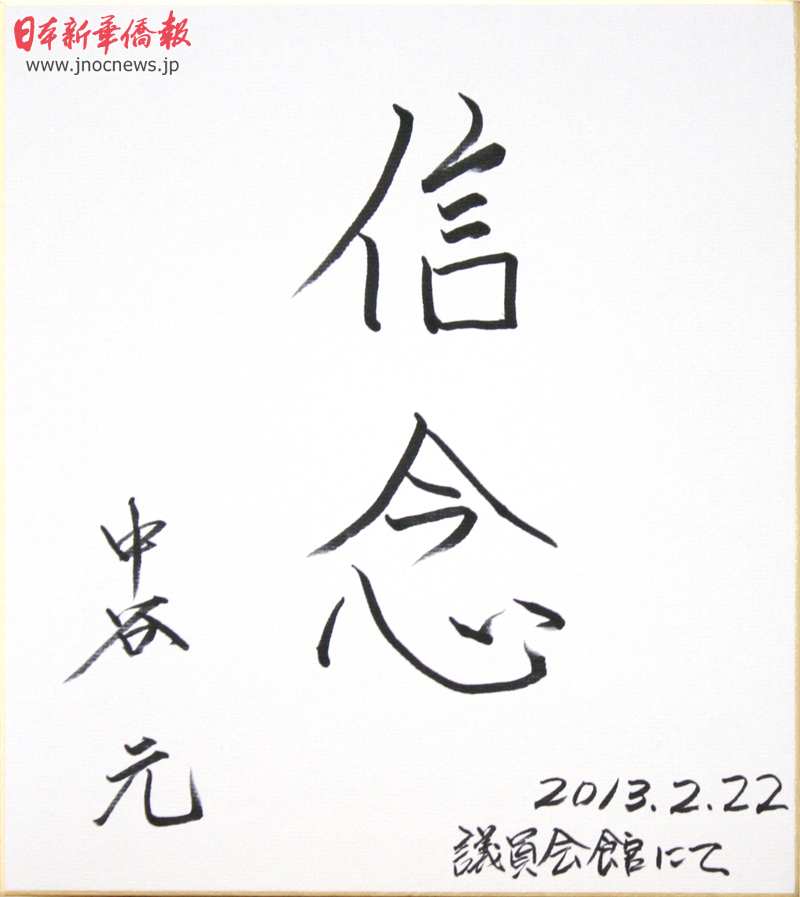 日本新華僑報
www.jnocnews.jp
信念
中谷 元
2013.2.22
議員会館にて